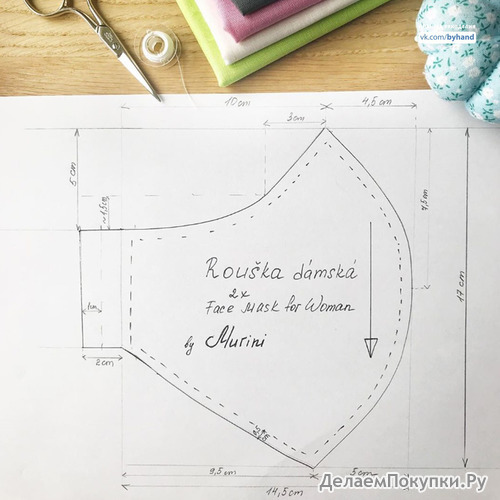 vk.com/byhand
10 cm
4,5 cm
3 cm
5 cm
~1,5cm
7,5 cm
17 cm
Rouška dámská
2x
Face Mask for Woman
by Murini
1cm
2 cm
9,5 cm
5 cm
14,5 cm
ДелаемПокупки.Ру